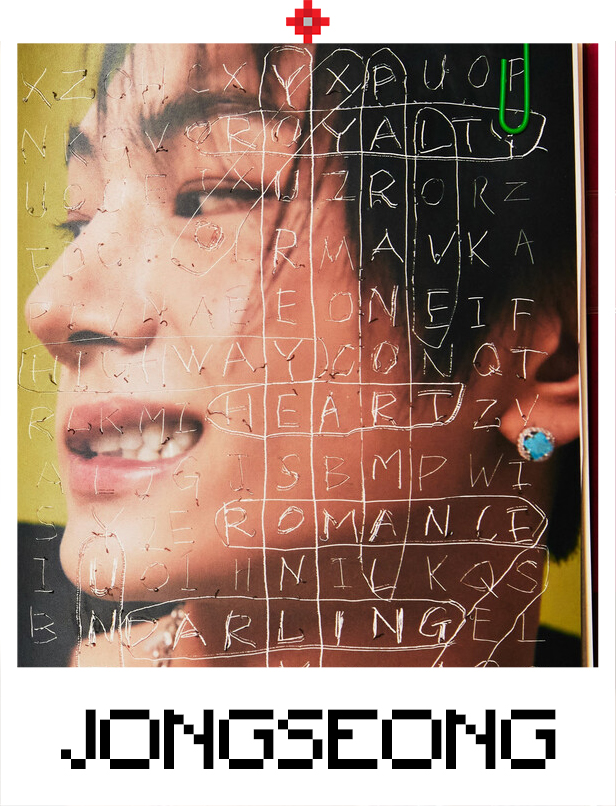 X Z X Y X P U O P
N V O R O Y A L T Y
U X U Z R O R Z
O L R M A V K A
E E O N E I F
H I G H W A Y O O N Q T
R K M L H E A R T Z Y
A L J G I S B M P W I
S Y E R O M A N C E
I U O I H N I L K Q S
B N D A R L I N G E L
JONGSEONG